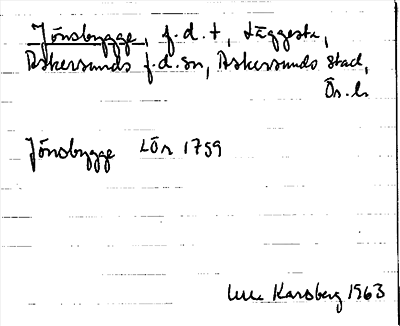 Jönsbygge, f.d.t, Läggesta,
Askersunds f.d.sn, Askersunds stad,
Ör.l.
Jönsbygge LÖr 1759
Karsberg 1963